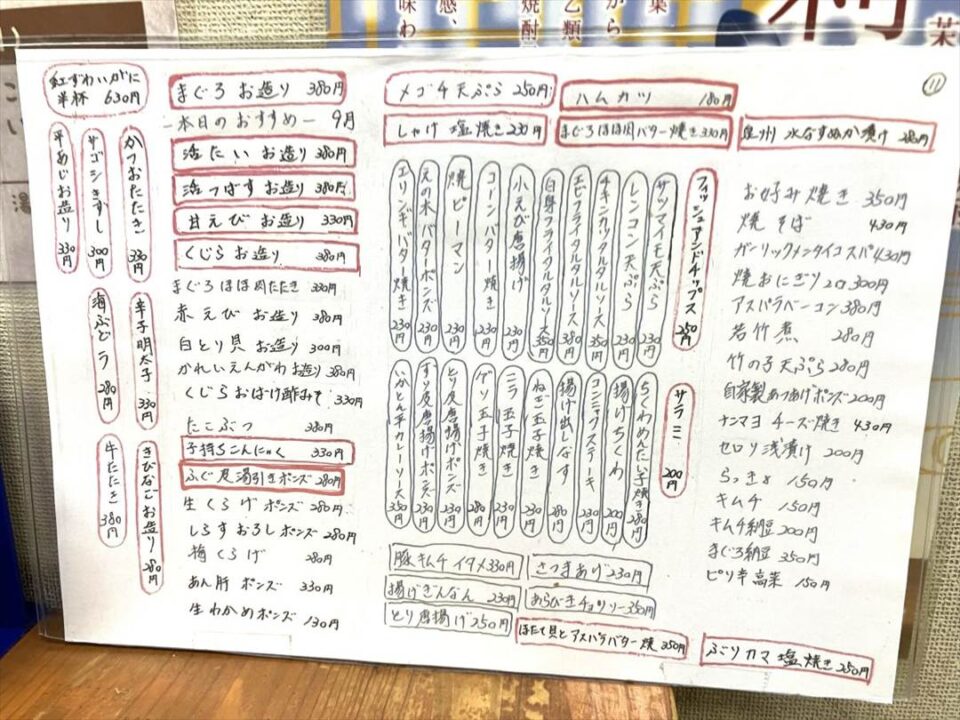 集
から
乙類
焼酎
感、
味わ
紅ずわいがに
半杯 630円
かつおたたき 330円
サゴシきずし 300円
平あじお造り 330円
辛子明太子 330円
海ぶどう 280円
きびなごお造り 280円
牛たたき 380円
まぐろお造り 380円
本日のおすすめ 9月
活たいお造り 380円
活つばすお造り 380円
甘えびお造り 330円
くじらお造り 380円
まぐろほほ肉たたき 330円
赤えびお造り 380円
白とり貝お造り 300円
かれいえんがわお造り 380円
くじらおばけ酢みそ 330円
たこぶつ 330円
子持ちこんにゃく 330円
ふぐ皮湯引きポンズ 280円
生くらげポンズ 280円
しらすおろしポンズ 280円
梅くらげ 280円
あん肝ポンズ 330円
生わかめポンズ 130円
メゴチ天ぷら 250円
ハムカツ 180円
⑪
しゃけ塩焼き 230円
まぐろほほ肉バター焼き 330円
泉州水なすぬか漬け 280円
フィッシュアンドチップス 250円
サツマイモ天ぷら 230円
レンコン天ぷら 230円
チキンカツタルタルソース 350円
エビフライタルタルソース 380円
白身フライタルタルソース 350円
小えび唐揚げ 230円
コーンバター焼き 230円
焼ピーマン 230円
えの木バターポンズ 230円
エリンギバター焼き 230円
サラミ 200円
ちくわめんたい子焼き 280円
揚げちくわ 200円
コンニャクステーキ 230円
揚げ出しなす 280円
ねぎ玉子焼き 230円
ニラ玉子焼き 230円
ゲソ玉子焼き 280円
とり皮唐揚げポンズ 230円
すり身唐揚げポンズ 230円
いかとん平カレーソース 350円
豚キムチイタメ 330円
さつまあげ 230円
揚げぎんなん 230円
あらびきチョリソー 350円
とり唐揚げ 250円
ほたて貝とアスパラバター焼 350円
ぶりカマ塩焼き 250円
お好み焼き 350円
焼そば 430円
ガーリックメンタイコスパ 430円
焼おにぎり2コ 300円
アスパラベーコン 380円
若竹煮 280円
竹の子天ぷら 280円
自家製あつあげポンズ 200円
ナンマヨチーズ焼き 430円
セロリ浅漬け 200円
らっきょ 150円
キムチ 150円
キムチ納豆 200円
まぐろ納豆 350円
ピリ辛高菜 150円